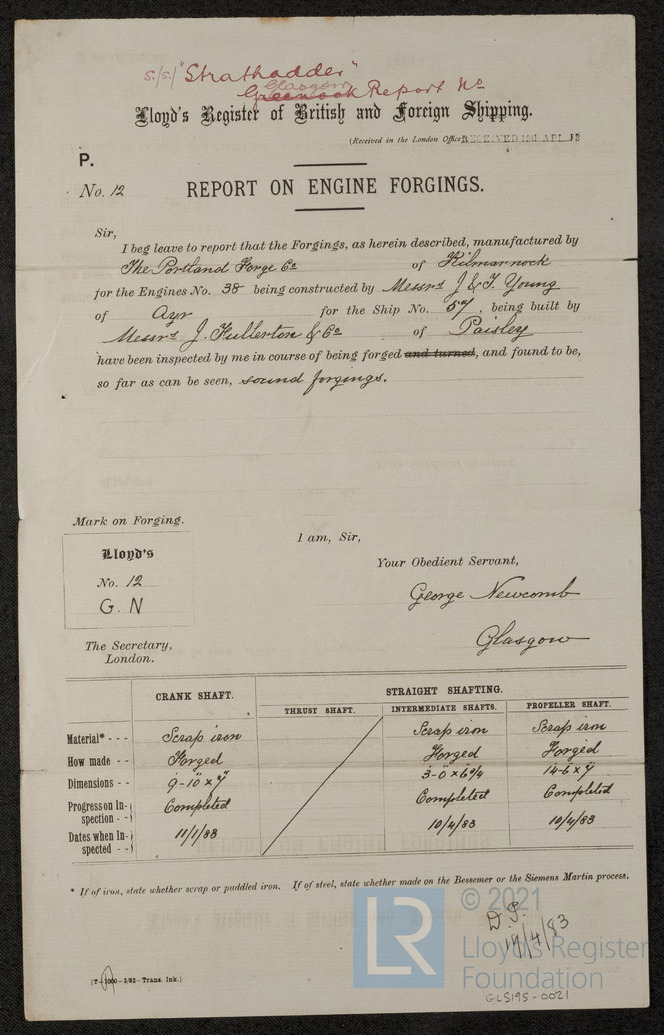 s./s./ "Strathadder"
Glasgow
Greenock Report No
Lloyd's Register of British and Foreign Shipping.
(Received in the London Office RECEIVED
P.
No. 12
REPORT ON ENGINE FORGINGS.
Sir,
I beg leave to report that the Forgings, as herein described, manufactured by
The Portland Forge Co of Kilmarnock
for the Engines No. 38 being constructed by Messrs J & T. Young
of Ayr for the Ship No. 57, being built by
Messrs J. Fullerton & Co of Paisley
have been inspected by me in course of being forged and turned, and found to be,
so far as can be seen, sound forgings.
Mark on Forging.
Lloyd's
No. 12
G. N
I am, Sir,
Your Obedient Servant,
George Newcomb
Glasgow
The Secretary,
London.
CRANK SHAFT. STRAIGHT SHAFTING.
THRUST SHAFT. INTERMEDIATE SHAFTS. PROPELLER SHAFT.
Material* - - - Scrap iron Scrap iron Scrap iron
How made - - Forged Forged Forged
Dimensions - - 9-10" x 7" 3-0" x 6 3/4 14-6 x 7
Progress on In-spection - - Completed Completed Completed
Dates when In-spected - - 11/1/83 10/4/83 10/4/83
* If of iron, state whether scrap or puddled iron. If of steel, state whether made on the Bessemer or the Siemens Martin process.
© 2021
LR
Lloyd's Register
Foundation
/4/83
1000—2/82—Trans. Ink.]
GLS195-0021